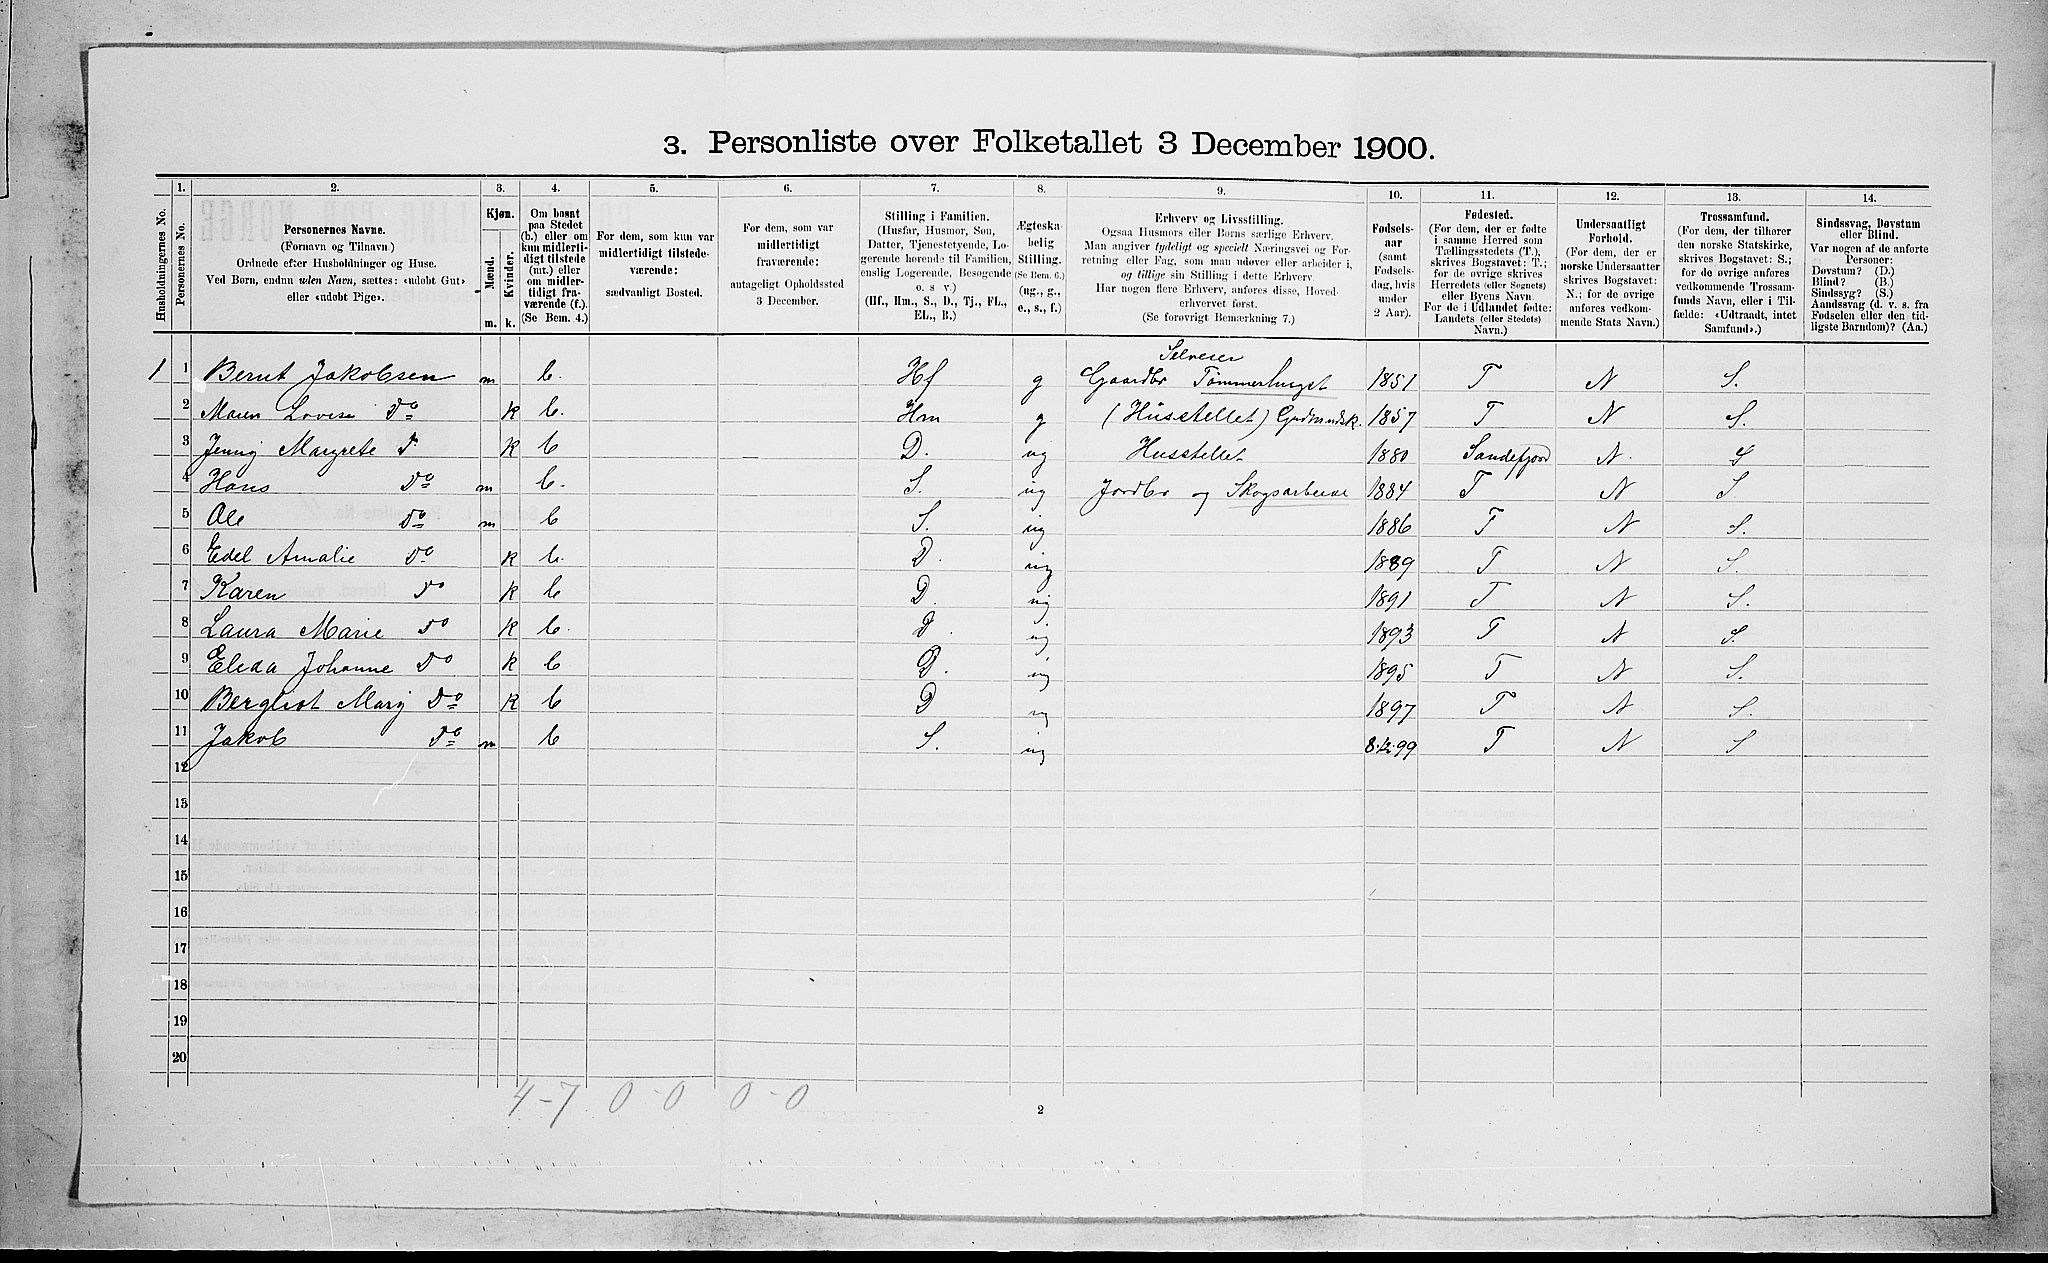 3. Personliste over Folketallet 3 December 1900.
1. 2. 3. 4. 5. 6. 7. 8. 9. 10. 11. 12. 13. 14.
Husholdningernes No.
Personernes No.
Personernes Navne.
(Fornavn og Tilnavn)
Ordnede efter Husholdninger og Huse.
Ved Børn, endnu uden Navn, sættes: «udøbt Gut»
eller «udøbt Pige».
Kjøn.
Mænd.
Kvinder.
m. k.
Om bosat
paa Stedet
(b.) eller om
kun midlerti-
digt tilstede
(mt.) eller
om midler-
tidigt fra-
værende (f.).
(Se Bem. 4.)
For dem, som kun var
midlertidigt tilstede-
værende:
sædvanligt Bosted.
For dem, som var
midlertidigt
fraværende:
antageligt Opholdssted
3 December.
Stilling i Familien.
(Husfar, Husmor, Søn,
Datter, Tjenestetyende, Lo-
gerende hørende til Familien,
enslig Logerende, Besøgende
o. s v.)
(Hf., Hm., S., D., Tj., FL.,
EL., B.)
Ægteska-
belig
Stilling.
(Se Bem. 6.)
(ug., g.,
e., s., f.)
Erhverv og Livsstilling.
Ogsaa Husmors eller Børns særlige Erhverv.
Man angiver tydeligt og specielt Næringsvei og For-
retning eller Fag, som man udøver eller arbeider i,
og tillige sin Stilling i dette Erhverv.
Har nogen flere Erhverv, anføres disse, Hoved-
erhvervet først.
(Se forøvrigt Bemærkning 7.)
Fødsels-
aar
(samt
Fødsels-
dag, hvis
under
2 Aar).
Fødested.
(For dem, der er fødte
i samme Herred som
Tællingsstedets (T.),
skrives Bogstavet: T.;
for de øvrige skrives
Herredets (eller Sognets)
eller Byens Navn.
For de i Udlandet fødte:
Landets (eller Stedets)
Navn.)
Undersaatligt
Forhold.
(For dem, der er
norske Undersaatter
skrives Bogstavet:
N.; for de øvrige
anføres vedkom-
mende Stats Navn.)
Trossamfund.
(For dem, der tilhører
den norske Statskirke,
skrives Bogstavet: S.;
for de øvrige anføres
vedkommende Trossam-
funds Navn, eller i Til-
fælde: «Udtraadt, intet
Samfund».)
Sindssvag, Døvstum
eller Blind.
Var nogen af de anførte
Personer:
Døvstum? (D.)
Blind? (B.)
Sindssyg? (S.)
Aandssvag (d. v. s. fra
Fødselen eller den tid-
ligste Barndom)? (Aa.)
Selveier
1 1 Bernt Jakobsen m b. Hf g Gaardbr Tømmerhugst 1851 T N S.
2 Maren Lovise Do k b. Hm g (Husstellet) 1857 T N S.
3 Jenny Margrete D k b D. ug Husstellet 1880 Sandefjord N. S
4 Hans Do m b. S. ug Jordbr og Skogsarbeide 1884 T N S
5 Ole Do m b S. ug 1886 T N S.
6 Edel Amalie Do k b. D. ug 1889 T N S.
7 Karen Do k b D. ug 1891 T N S.
8 Laura Marie Do k b. D. ug 1893 T N S.
9 Elida Johanne Do k b D. ug 1895 T N S.
10 Bergliot Mary Do k b D ug 1897 T N S.
11 Jakob Do m b S. ug 8.12.99 T N S
12
13
14
15
16
17
18
19
20
4-7 0-0 0-0
2